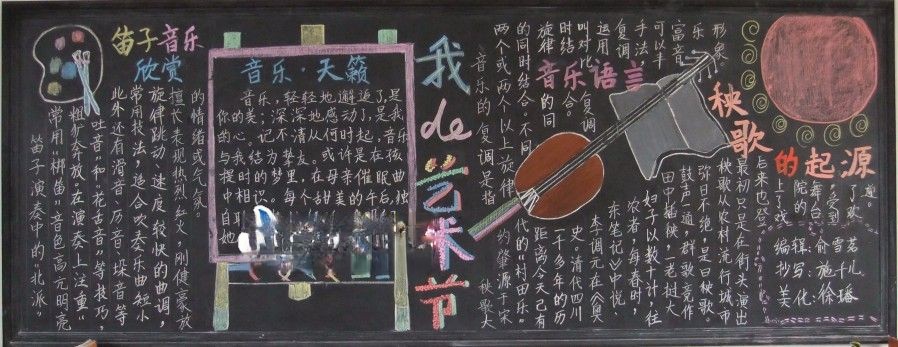 笛子音乐
欣赏
笛子演奏中的"北派"
常用梆笛"音色高亢明亮
粗犷奔放。在演奏上注重"
吐音"和"花舌音"等技巧,
此外还有滑音、历音、垛音等
常用技法,适合吹奏乐曲短小
旋律跳动、速度较快的曲调,
擅长表现热烈、红火、刚健豪放
的情绪或气氛。
音乐·天籁
音乐,轻轻地邂逅了,是
你的美;深深地感动了,是我
的心。记不清从何时起,音乐
与我结为挚友。或许是在孩
提时的梦里,在母亲催眠曲
中相识。每个甜美的午后,独
自
她
我de艺术节
音乐语言
音乐的复调是指
两个或两个以上旋律
的同时结合。不同
旋律的同
时结合。
叫对比
复调
运用
复调
手法,
可以丰
富音
乐
形象。
秧歌
的起源
秧歌大
约肇源于宋
代的"村田乐",
距离今天已有
一千多年的历
史。清代四川
李调元在《粤
东笔记》中说:
农者,每春时,
妇子以数十计,往
田中插秧,一老挝大
鼓声一通,群歌竞作
弥日不绝,是曰秧歌。
秧歌从农村流行城市
最初只是在街头演出
后来也登
上了戏
院的
舞台,
受到
了欢
迎。
编辑:俞雪若
抄写:施千儿
美化:徐璠